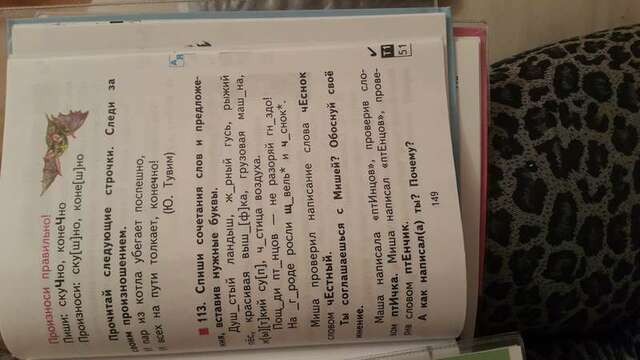 Произноси правильно!
Пиши: скуЧно, конеЧно
Произноси: ску[ш]но, коне[ш]но
Прочитай следующие строчки. Следи за
своим произношением.
И пар из котла убегает поспешно,
И всех на пути толкает, конечно!
(Ю. Тувим)
113. Спиши сочетания слов и предложе-
ния, вставив нужные буквы.
Душ_стый ландыш, ж_рный гусь, рыжий
пёс, красивая выш_[ф]ка, грузовая маш_на,
вк[ы][г]кий су[п], ч_стица воздуха.
Пощ_ди пт_нцов — не разоряй гн_здо!
На _г_роде росли щ_вель* и ч_снок*.
Миша проверил написание слова чЕснок
словом чЕстный.
Ты соглашаешься с Мишей? Обоснуй своё
мнение.
Маша написала «птИнцов», проверив сло-
вом птИчка. Миша написал «птЕнцов», прове-
рив словом птЕнчик.
А как написал(а) ты? Почему?
149
А
Я
Т1
51